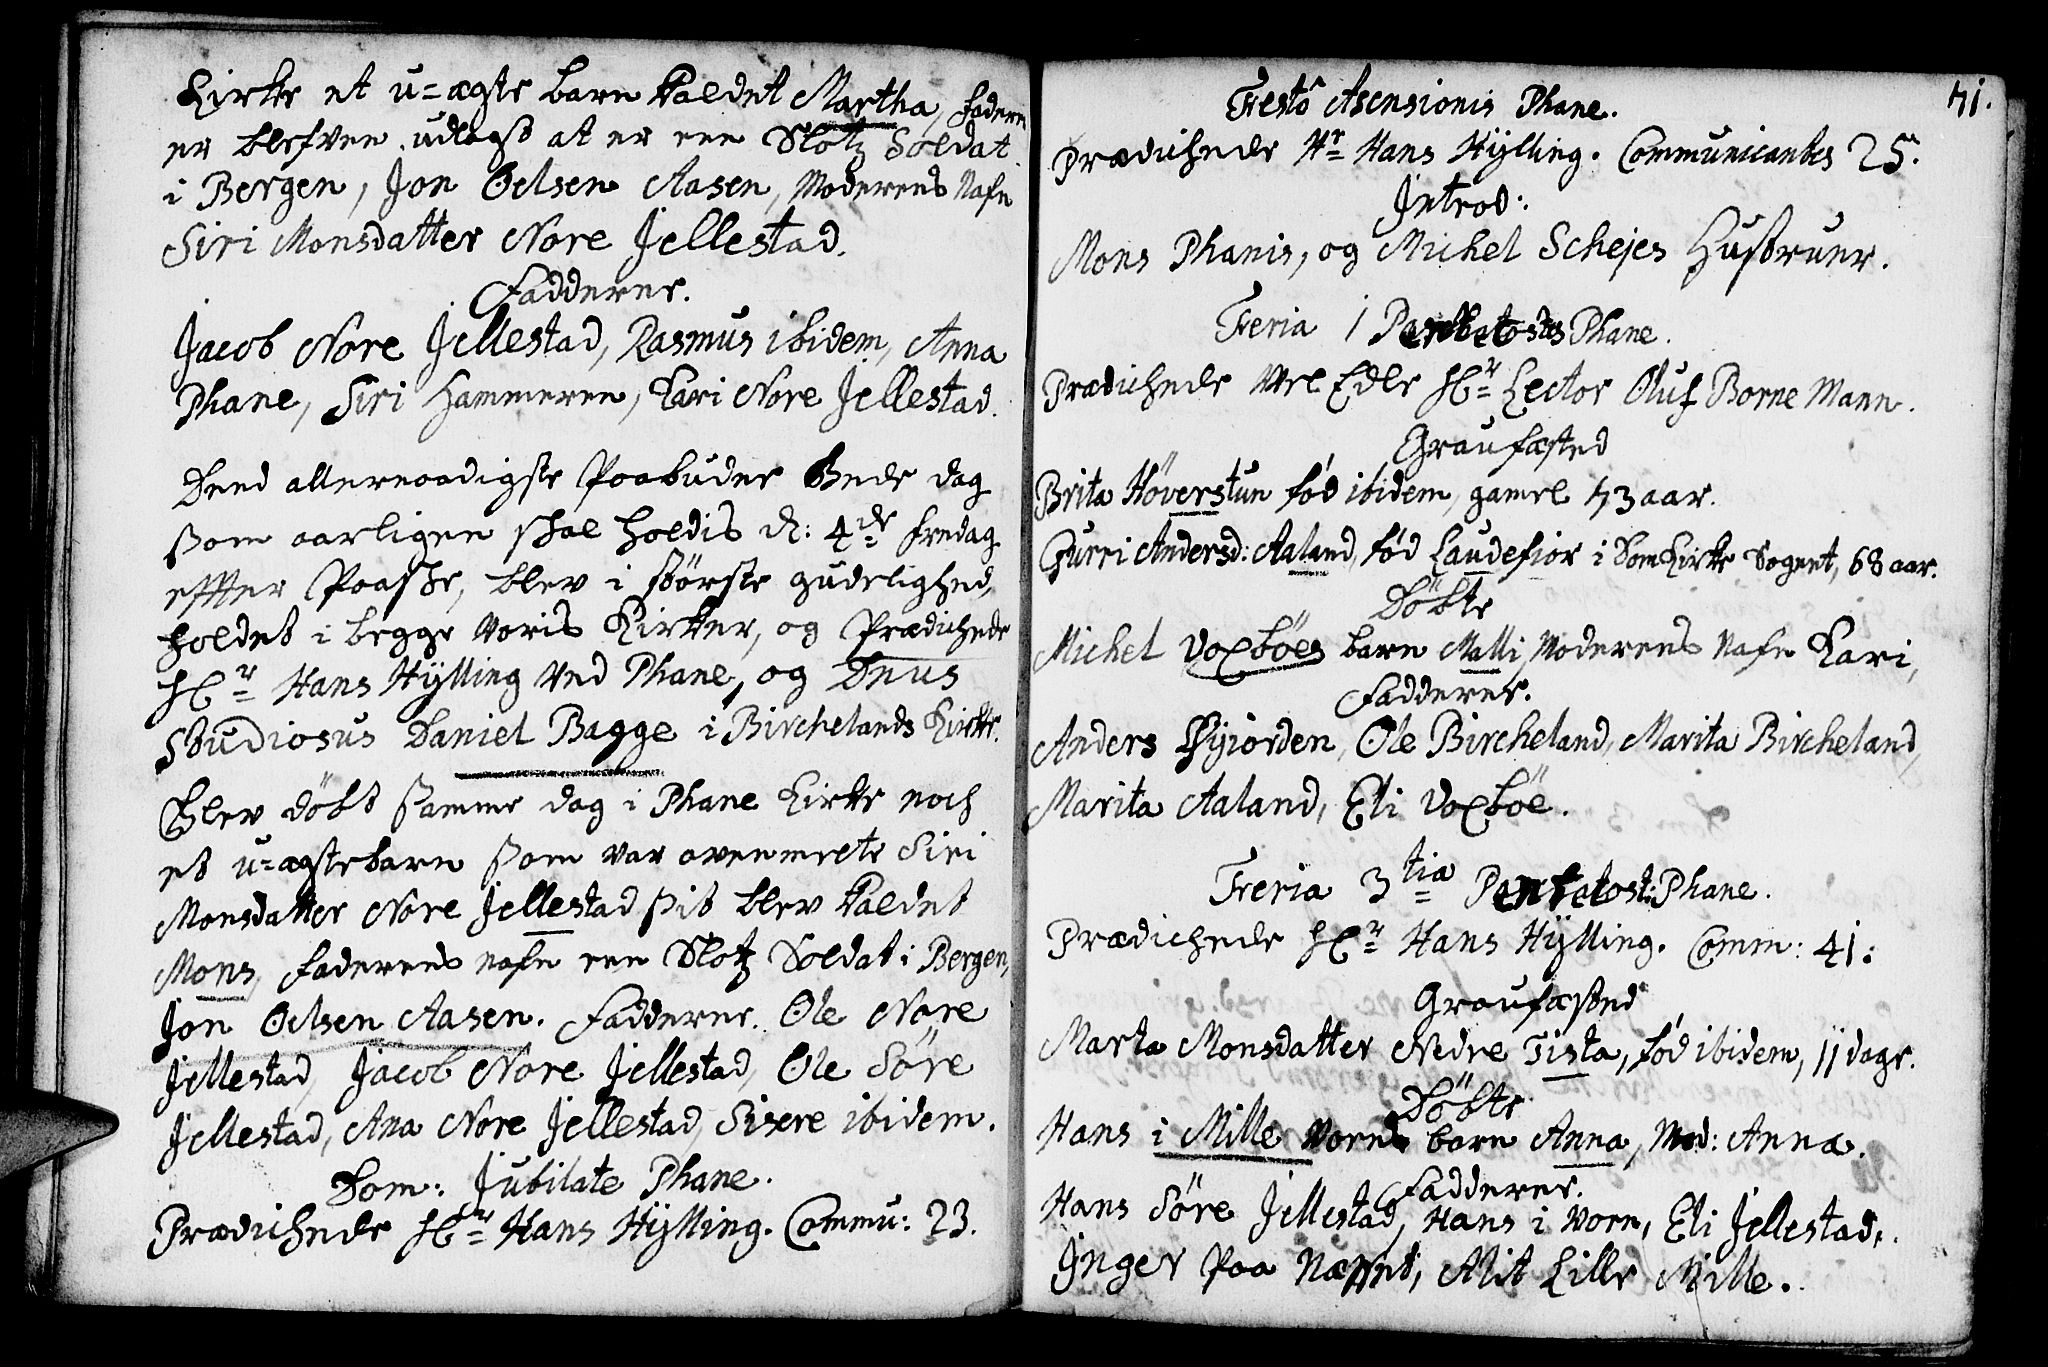 Kirke et u=ægte barn kaldet Martha, faderen
er blefven udlagt at er een Slotz Soldat
i Bergen, Jon Oelsen Aasen, Moderens Nafn
Siri Monsdatter Nore Jellestad.
Fadderer.
Jacob Nore Jellestad, Rasmus ibidem, Anna
Phane, Siri Hammeren, Kari Nore Jellestad.
Dend allernaadigste Paabudne Bede dag
som aarligen skal holdis d: 4de fredag
effter Paasche, blev i største gudelighed,
holdet i begge voris Kirker, og Prædichede
Hr Hans Hÿlling ved Phane, og Dnus
Studiosus Daniel Bagge i Birchelands Kirke.
Blev döbt samme dag i Phane Kirke noch
et u=ægte barn som var ovenmelte Siri
Monsdatter Nore Jellestad sit blev kaldet
Mons, faderens nafn een Slotz Soldat i Bergen,
Jon Oelsen Aasen. Fadderer. Ole Nore
Jellestad, Jacob Nore Jellestad, Ole Söre
Jellestad, Ana Nore Jellestad, Sisere ibidem.
Dom: Jubilate Phane.
Prædichede Hr Hans Hÿlling. Commu: 23.
71.
Festô Asensionis Phane.
Prædichede Hr Hans Hÿlling. Communicantes 25.
Introd:
Mons Phanis, og Michel Schejes Hustruer.
Feria 1 Pentetostes Phane.
Prædichede Vel Edle Hr Lector Oluf Borne Mann.
Graufæsted
Brita Höverstun fód ibidem, gamel 73 aar.
Gurri Andersd: Aaland, fód Laudefior i DomKirke Sognet, 68 aar.
Döbte
Michel Voxböes barn Malli, Moderens Nafn Kari,
Fadderer.
Anders Øyjorden, Ole Bircheland, Marita Bircheland,
Marita Aaland, Eli Voxböe.
Feria 3tia Pentetost: Phane.
Prædichede Hr Hans Hÿlling. Comm: 41:
Graufæsted
Marta Monsdatter Nedre Tista, fód ibidem, 11 dage.
Döbte
Hans i Mille Vornes barn Anna, Mod: Anna.
Fadderer.
Hans Söre Jellestad, Hans i Vorn, Eli Jellestad,
Inger paa Næsset, Alit Lille Mille.